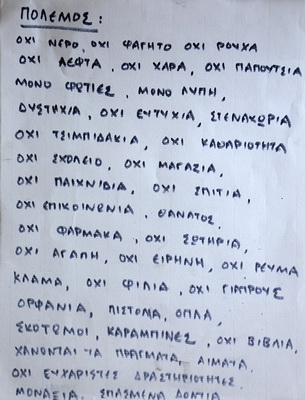 ΠΟΛΕΜΟΣ:
ΟΧΙ ΝΕΡΟ, ΟΧΙ ΦΑΓΗΤΟ ΟΧΙ ΡΟΥΧΑ
ΟΧΙ ΛΕΦΤΑ, ΟΧΙ ΧΑΡΑ, ΟΧΙ ΠΑΠΟΥΤΣΙΑ
ΜΟΝΟ ΦΩΤΙΕΣ, ΜΟΝΟ ΛΥΠΗ,
ΔΥΣΤΗΧΙΑ, ΟΧΙ ΕΥΤΥΧΙΑ, ΣΤΕΝΑΧΩΡΙΑ
ΟΧΙ ΤΣΙΜΠΙΔΑΚΙΑ, ΟΧΙ ΚΑΘΑΡΙΟΤΗΤΑ
ΟΧΙ ΣΧΟΛΕΙΟ, ΟΧΙ ΜΑΓΑΣΙΑ,
ΟΧΙ ΠΑΙΧΝΙΔΙΑ, ΟΧΙ ΣΠΙΤΙΑ,
ΟΧΙ ΕΠΙΚΟΙΝΩΝΙΑ, ΘΑΝΑΤΟΣ,
ΟΧΙ ΦΑΡΜΑΚΑ, ΟΧΙ ΣΩΤΗΡΙΑ,
ΟΧΙ ΑΓΑΠΗ, ΟΧΙ ΕΙΡΗΝΗ, ΟΧΙ ΡΕΥΜΑ
ΚΛΑΜΑ, ΟΧΙ ΦΙΛΙΑ, ΟΧΙ ΓΙΑΤΡΟΥΣ
ΟΡΦΑΝΙΑ, ΠΙΣΤΟΛΙΑ, ΟΠΛΑ,
ΣΚΟΤΩΜΟΙ, ΚΑΡΑΜΠΙΝΕΣ, ΟΧΙ ΒΙΒΛΙΑ,
ΧΑΝΟΝΤΑΙ ΤΑ ΠΡΑΓΜΑΤΑ, ΑΙΜΑΤΑ,
ΟΧΙ ΕΥΧΑΡΙΣΤΕΣ ΔΡΑΣΤΗΡΙΟΤΗΤΕΣ
ΜΟΝΑΞΙΑ, ΣΠΑΣΜΕΝΑ ΔΟΝΤΙΑ